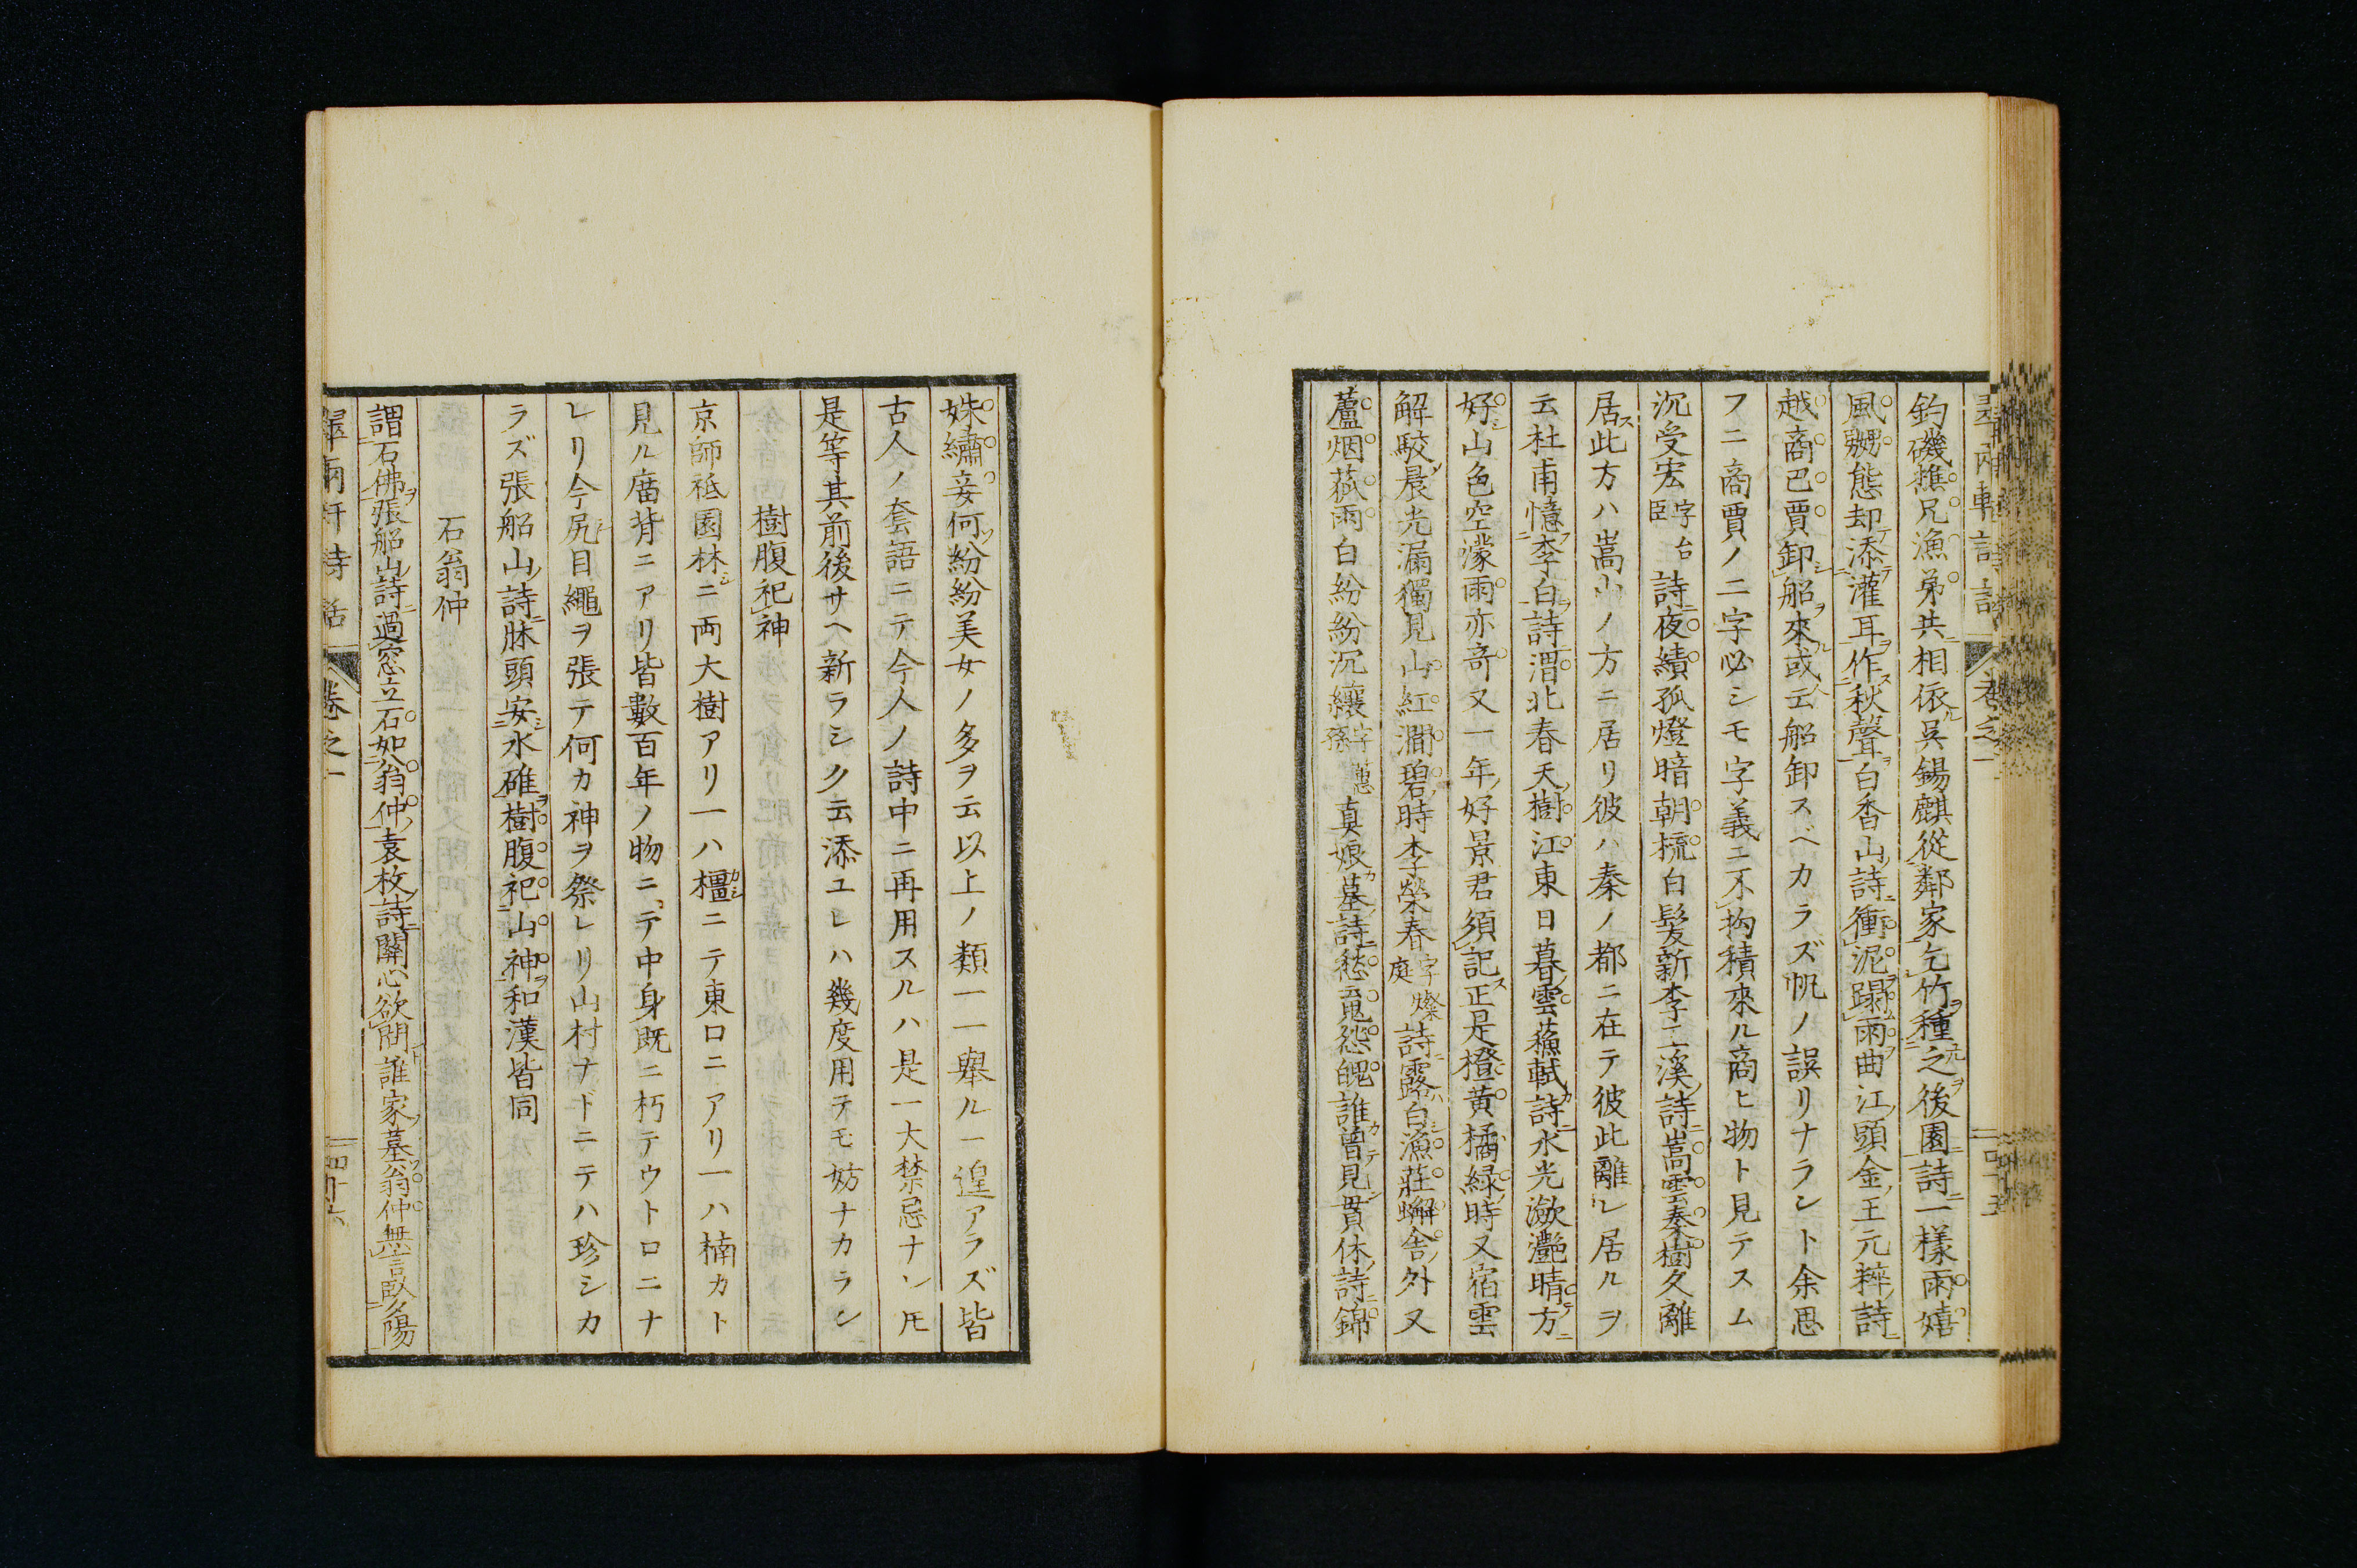 釣磯樵兄漁弟共相依吳錫麒從鄰家乞竹種之後園詩一樣雨嬉
風嬲態却添灌耳作秋聲白香山詩衝泥蹋雨曲江頭金王元粹詩
越商巴賈卸船來或云船卸スベカラズ帆ノ誤リナラント余思
フニ商賈ノ二字必シモ字義ニ不拘積來ル商ヒ物ト見テスム
沉受宏字台臣詩夜績孤燈暗朝梳白髪新李二溪詩嵩雲秦樹久離
居此方ハ嵩山ノ方ニ居リ彼ハ秦ノ都ニ在テ彼此離レ居ルヲ
云杜甫憶李白詩渭北春天樹江東日暮雲蘓軾詩水光瀲灔晴方
好山色空濛雨亦竒又一年好景君須記正是橙黄橘緑時又宿雲
解駁晨光漏獨見山紅澗碧時李榮春字燦庭詩露白漁莊蠏舎外又
蘆烟菰雨白紛紛沉纕字蕙孫真娘墓詩愁䰟怨魄誰曽見貫休詩錦
姝繡妾何紛紛美女ノ多ヲ云以上ノ類一一舉ルニ遑アラズ皆
古人ノ套語ニテ今人ノ詩中ニ再用スルハ是一大禁忌ナレ𪜈
是等其前後サヘ新ラシク云添ユレハ幾度用テモ妨ナカラン
樹腹祀神
京師祗園林ニ両大樹アリ一ハ橿ニテ東口ニアリ一ハ楠カト
見ル庿背ニアリ皆數百年ノ物ニテ中身既ニ朽テウトロニナ
レリ今尻目繩ヲ張テ何カ神ヲ祭レリ山村ナドニテハ珍シカ
ラズ張船山詩牀頭安水碓樹腹祀山神和漢皆同
石翁仲
謂石佛張船山詩過窓立石如翁仲袁枚詩關心欲問誰家墓翁仲無言臥夕陽
詩話 卷之一 四十六